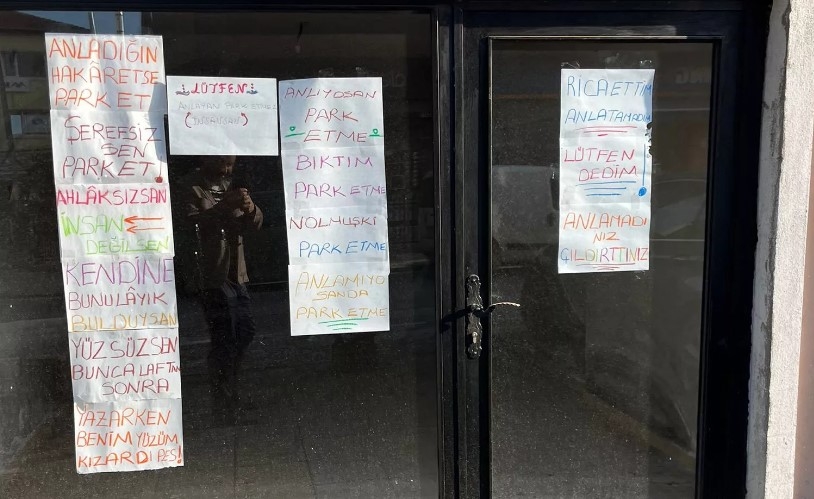 ANLADIĞIN
HAKÂRETSE
PARK ET
ŞEREFSİZ
SEN
PARK ET!
AHLÂKSIZSAN
İNSAN
DEĞİLSEN
KENDİNE
BUNU LÂYIK
BULDUYSAN
YÜZSÜZSEN
BUNCA LAFTAN
SONRA
YAZARKEN
BENİM YÜZÜM
KIZARDI PES!
LÜTFEN
ANLAYAN PARK ETMEZ
(İNSANSAN)
ANLIYOSAN
PARK
ETME
BIKTIM
PARK ETME
NOLMUŞKİ
PARK ETME
ANLAMIYO
SANDA
PARK ETME
RİCA ETTİM
ANLATAMADIM
LÜTFEN
DEDİM!
ANLAMADI
NIZ
ÇILDIRTTINIZ